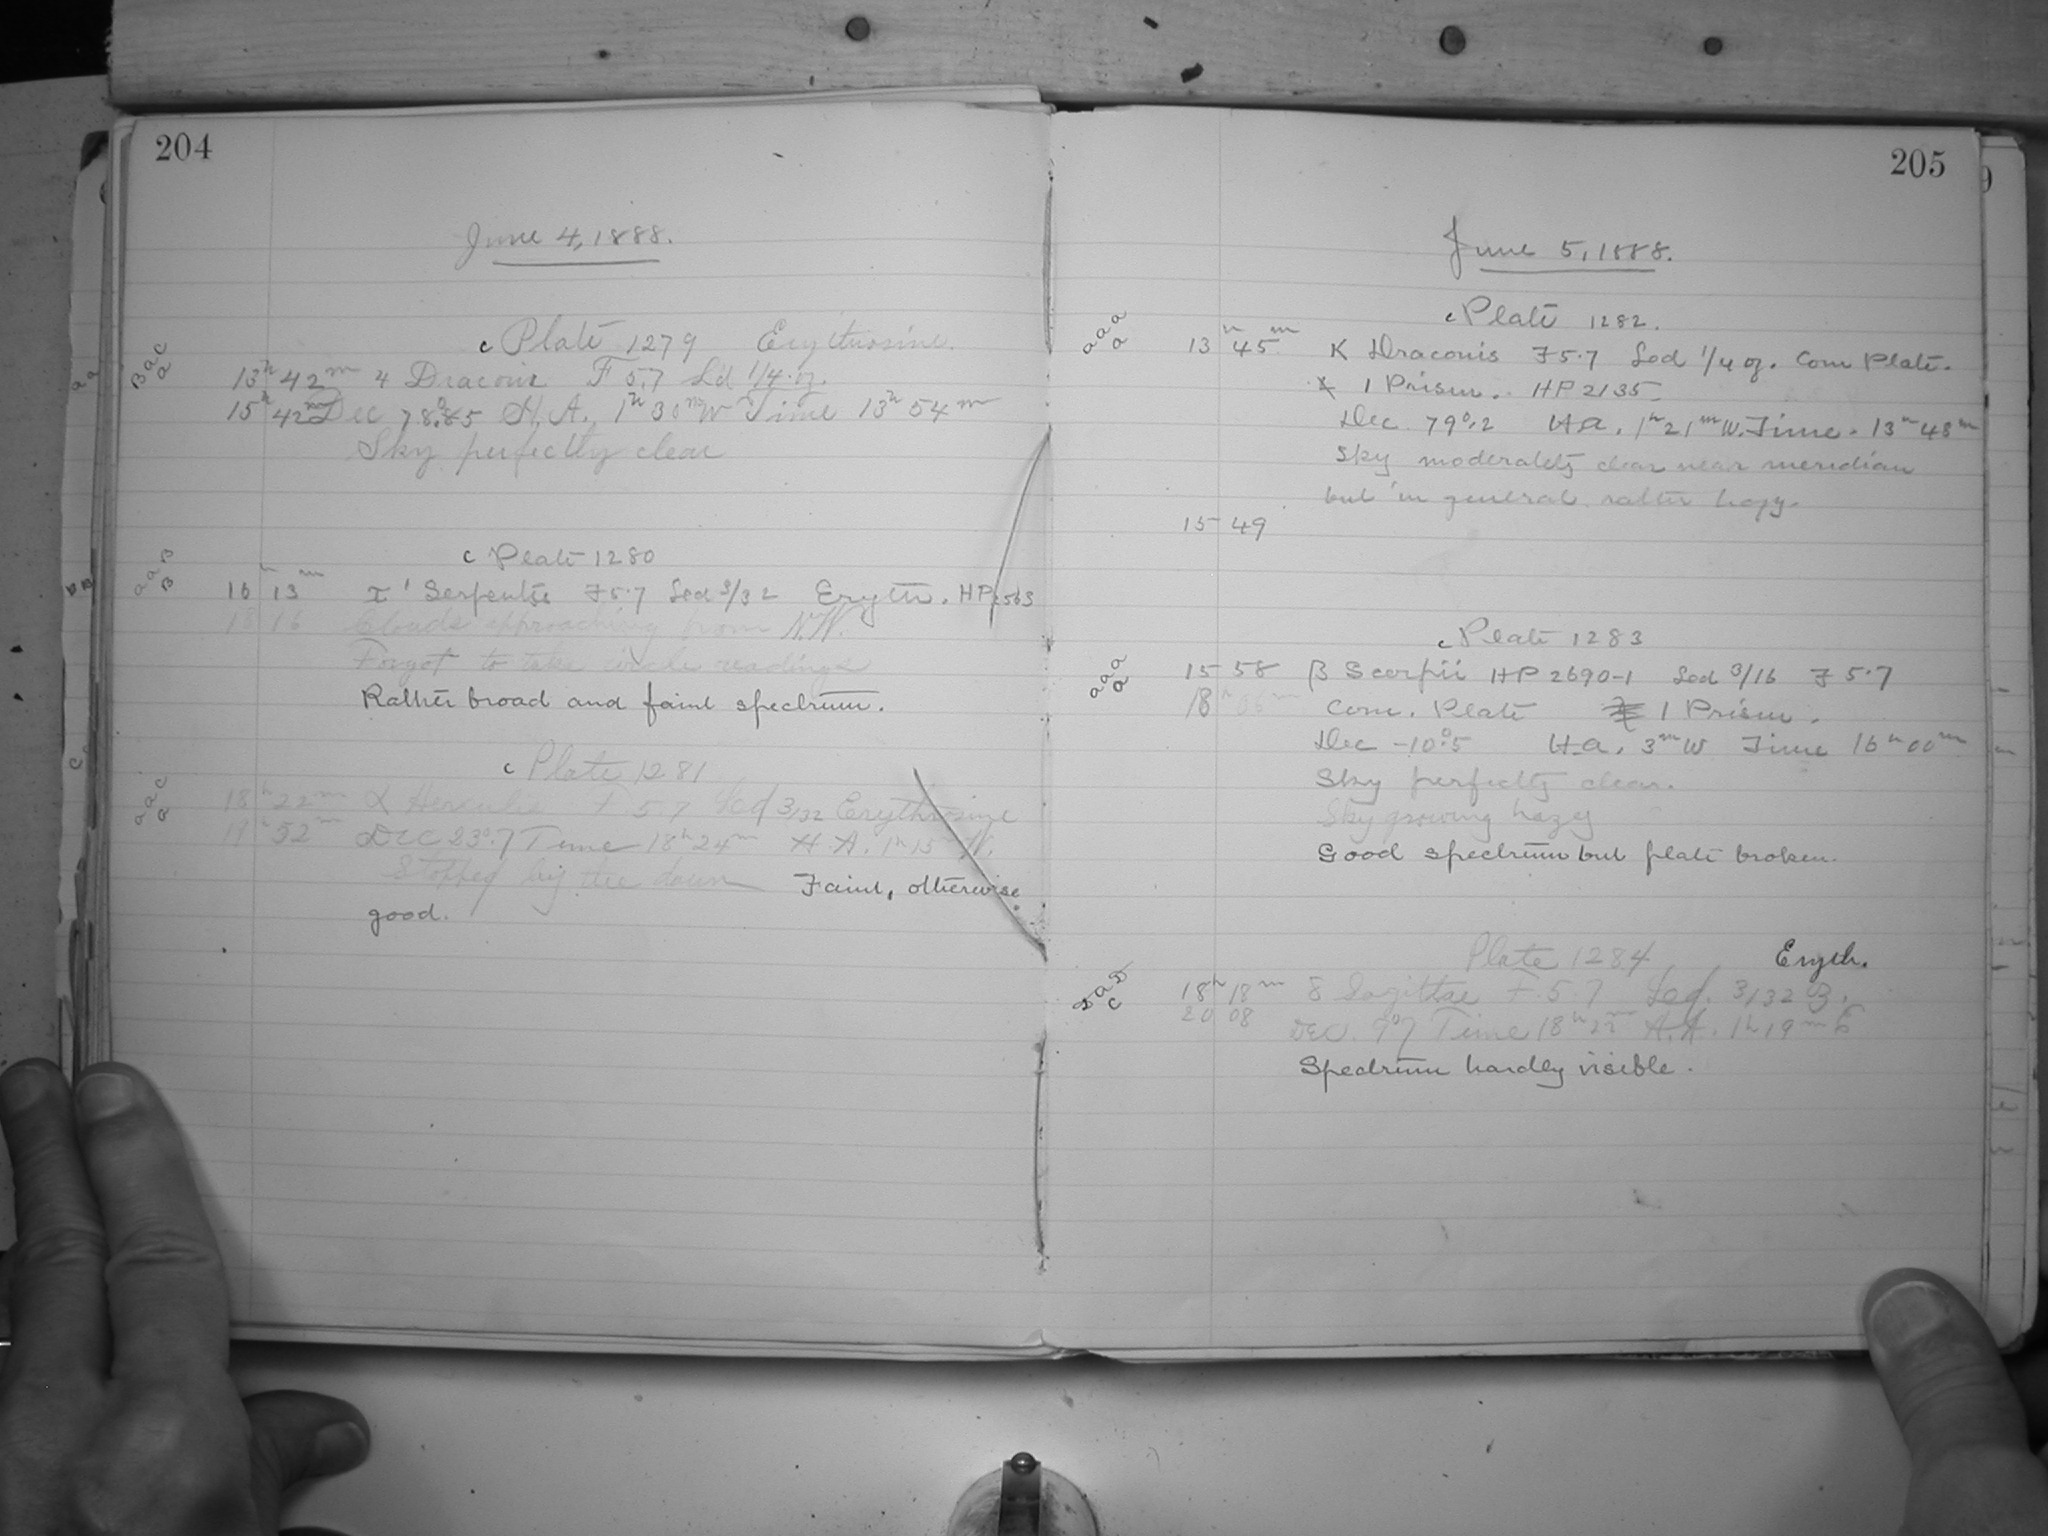 204
June 4, 1888.
c Plate 1279 Erythrosine.
13h 42m 4 Draconis F 5.7 Led 1/4 oz.
15h 42m Dec 78.85 H.A. 1h 30m W Time 13h 54m
Sky perfectly clear
c Plate 1280
16h 13m τ' Serpentis F 5.7 Led 3/32 Eryth. HP 2563
18 16 Clouds approaching from N.W.
Forgot to take circle readings
Rather broad and faint spectrum.
c Plate 1281
18h 22m α Herculis F 5.7 Led 3/32 Erythrosine
19h 52m Dec 23°.7 Time 18h 24m H.A. 1h 15m W.
Stopped by the dawn Faint, otherwise
good.
205
June 5, 1888.
c Plate 1282.
13h 45m K Draconis F 5.7 Led 1/4 oz. Com Plate.
1 Prism. HP 2135
Dec 79°.2 H.A. 1h 21m W. Time. 13h 48m
Sky moderately clear near meridian
but in general rather hazy.
15 49
c Plate 1283
15 58 β Scorpii HP 2690-1 Led 3/16 F 5.7
18h 06m Com. Plate 1 Prism.
Dec -10°.5 H.A. 3m W Time 16h 00m
Sky perfectly clear.
Sky growing hazy
Good spectrum but plate broken.
Plate 1284 Eryth.
18h 18m δ Sagittae F. 5.7 Led. 3/32 B.
20 08 Dec. 9°7 Time 18h 22m H.A. 1h 19m E
Spectrum hardly visible.